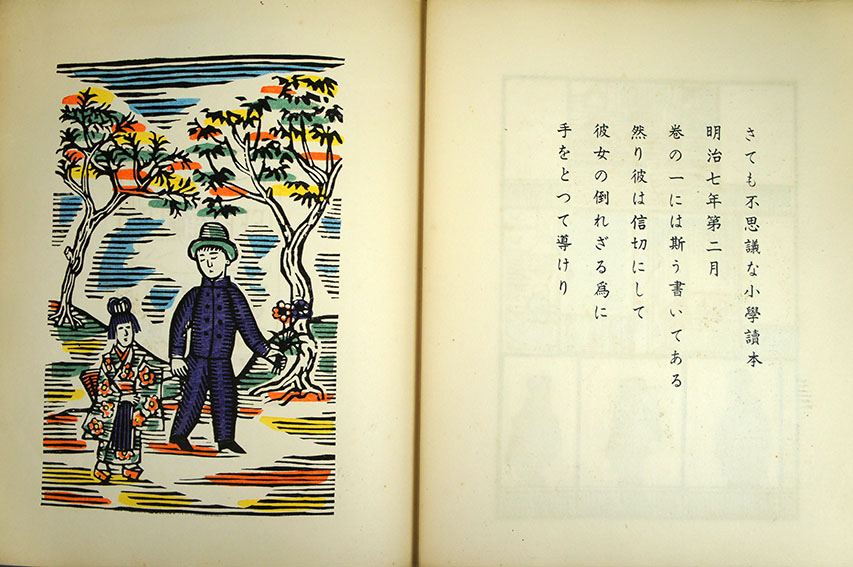 さても不思議な小學讀本
明治七年第二月
巻の一には斯う書いてある
然り彼は信切にして
彼女の倒れざる爲に
手をとつて導けり